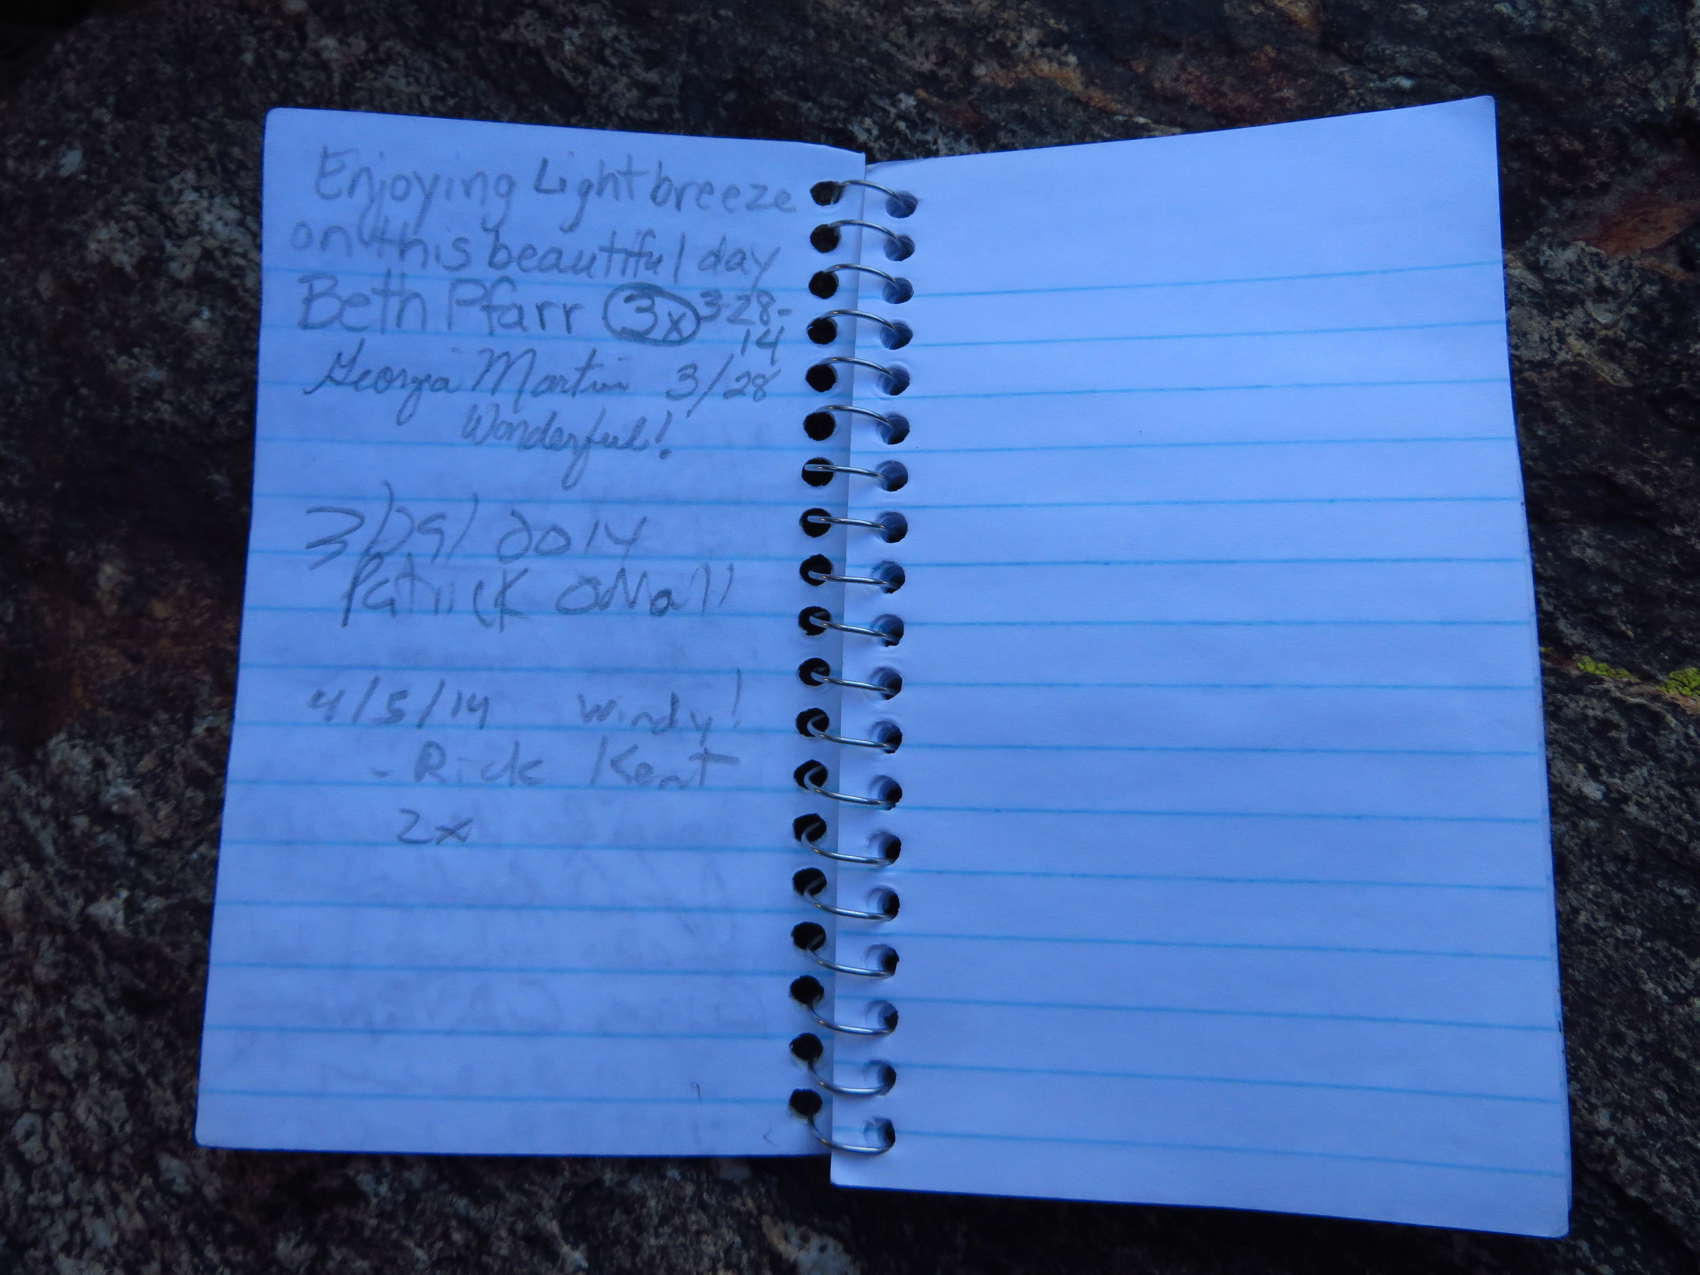 Enjoying Light breeze
on this beautiful day
Beth Pfarr 3x 3-28-
14
Georgia Martin 3/28
Wonderful!
3/29/2014
Patrick
4/5/14 Windy!
- Rick Kent
2x